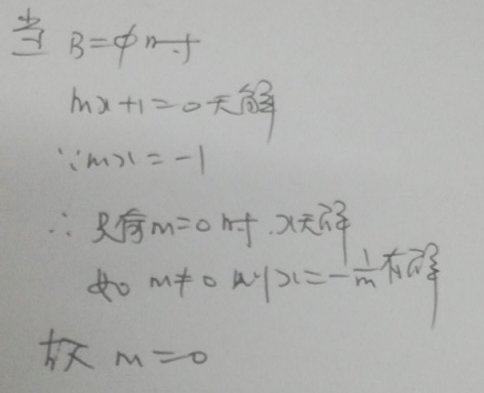 当 B=φ时
mx+1=0无解
∵mx=-1
∴ 只有m=0时.x无解
如 m≠0 则x=-1/m有解
故 m=0